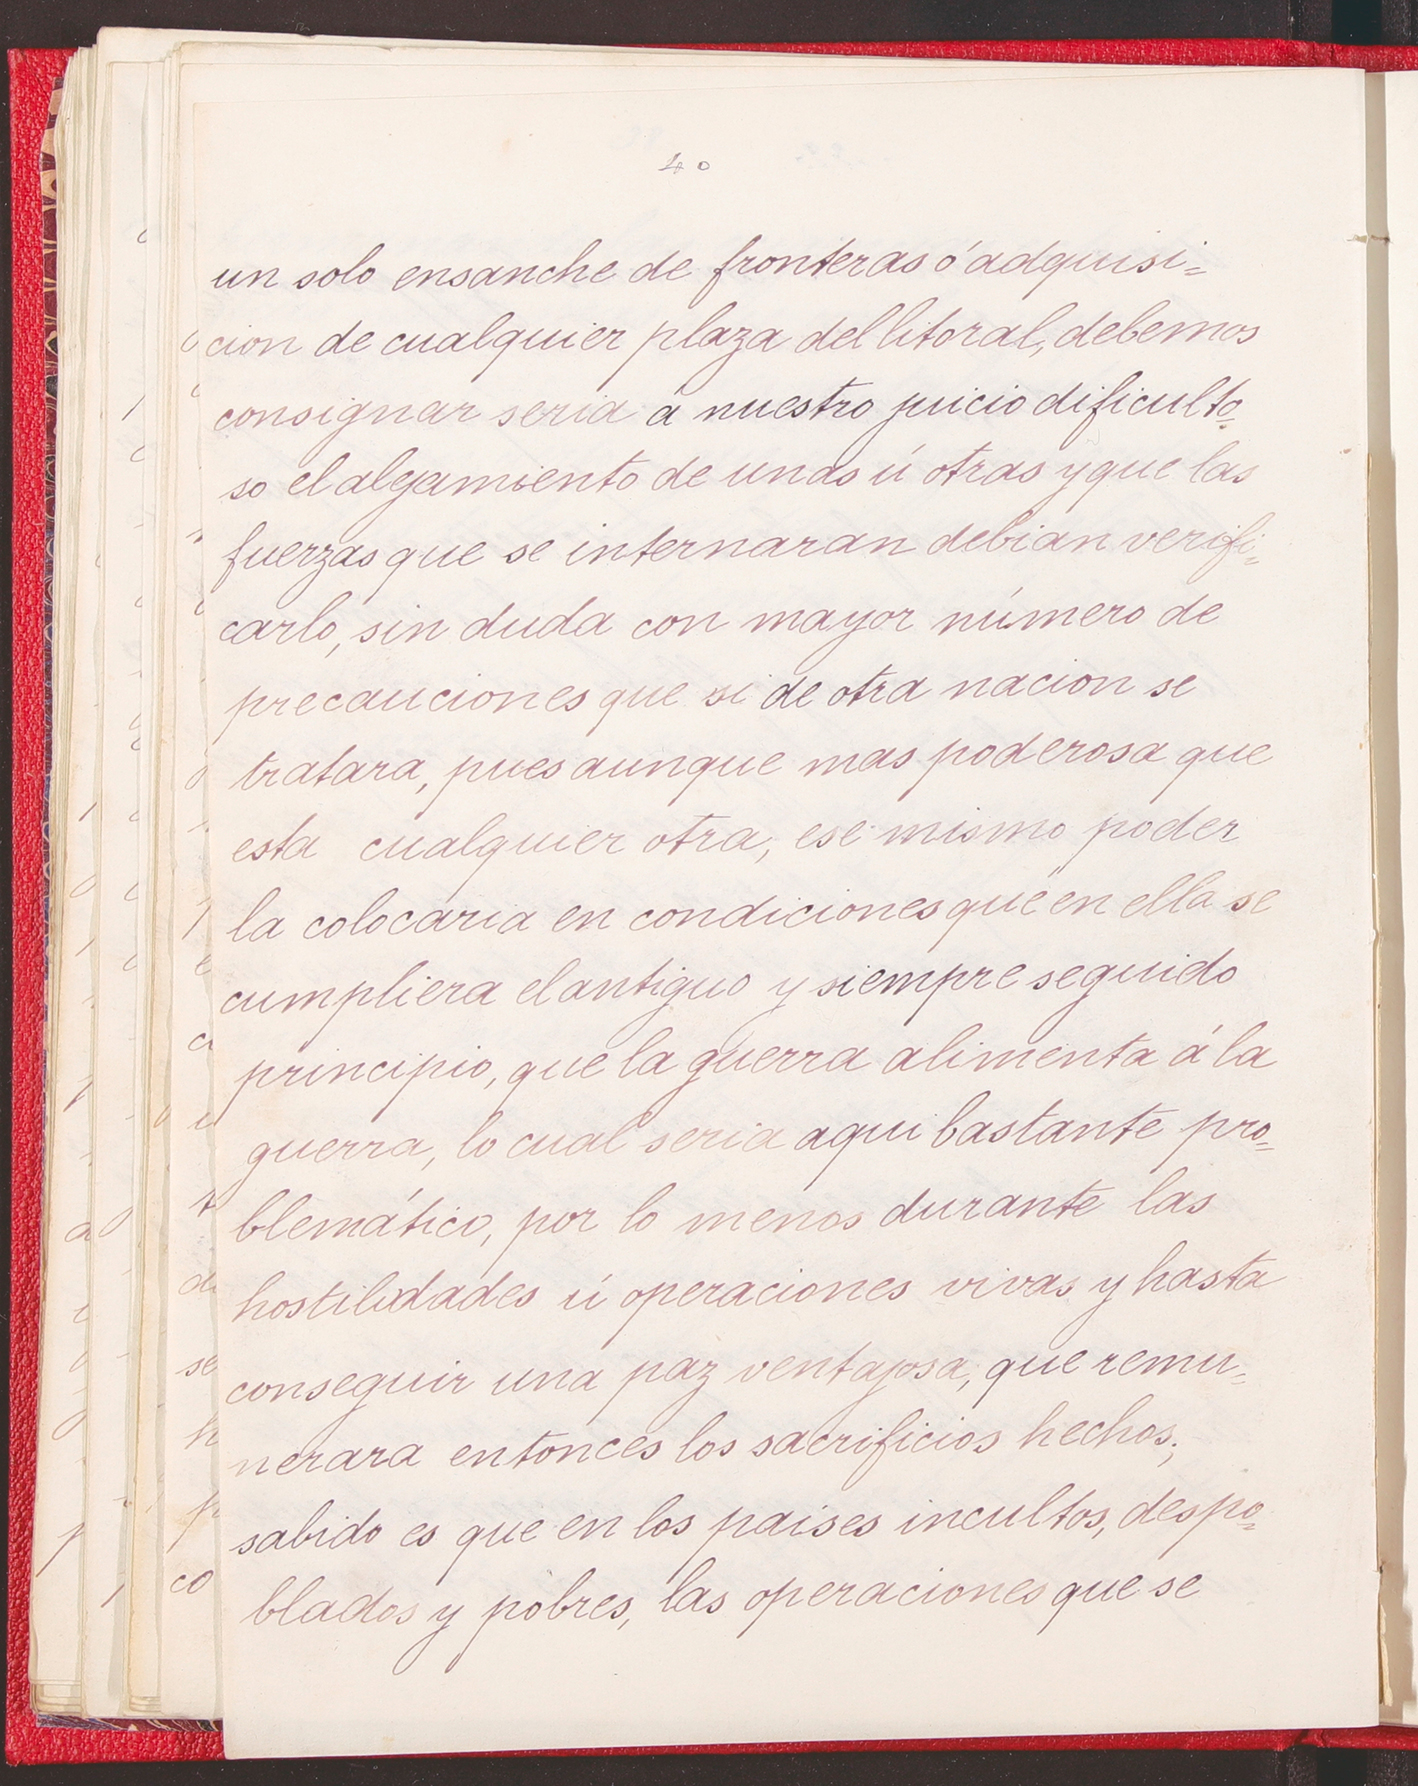 40
un solo ensanche de fronteras ó adquisi=
cion de cualquier plaza del litoral, debemos
consignar seria á nuestro juicio dificulto=
so el alejamiento de unas ú otras y que las
fuerzas que se internaran debian verifi=
carlo, sin duda con mayor número de
precauciones que si de otra nacion se
tratara, pues aunque mas poderosa que
esta cualquier otra, ese mismo poder
la colocaria en condiciones que en ella se
cumpliera el antiguo y siempre seguido
principio, que la guerra alimenta á la
guerra, lo cual seria aqui bastante pro=
blemático, por lo menos durante las
hostilidades ú operaciones vivas y hasta
conseguir una paz ventajosa, que remu=
nerara entonces los sacrificios hechos;
sabido es que en los paises incultos, despo=
blados y pobres, las operaciones que se